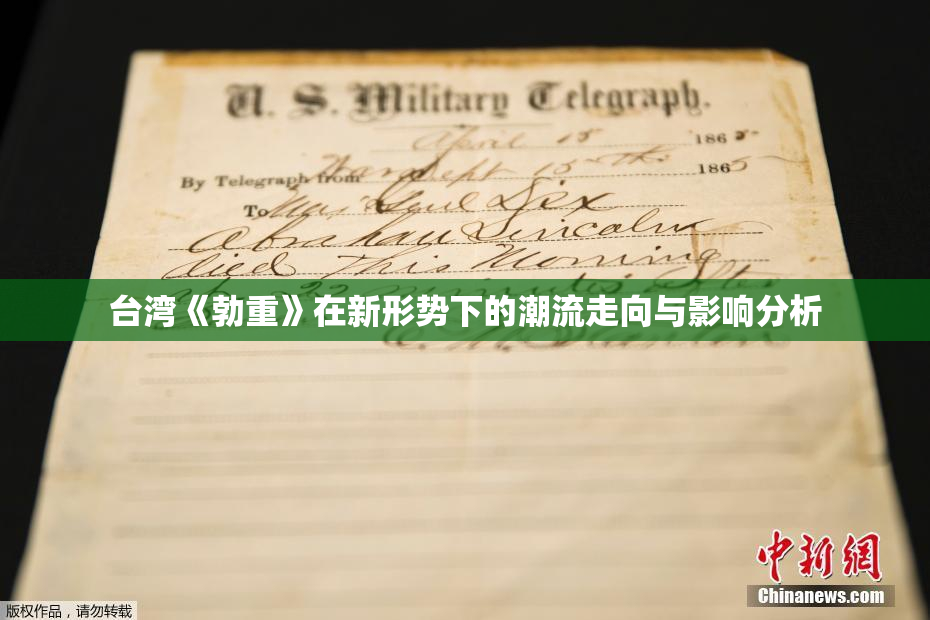 U. S. Military Telegraph.
April 15 1865
By Telegraph from War Dept 15th 1865
To Maj Genl Dix
Abraham Lincoln
died This Morning
22 minutes after
台湾《勃重》在新形势下的潮流走向与影响分析
E. M. Stanton
中新網
Chinanews.com
版权作品，请勿转载